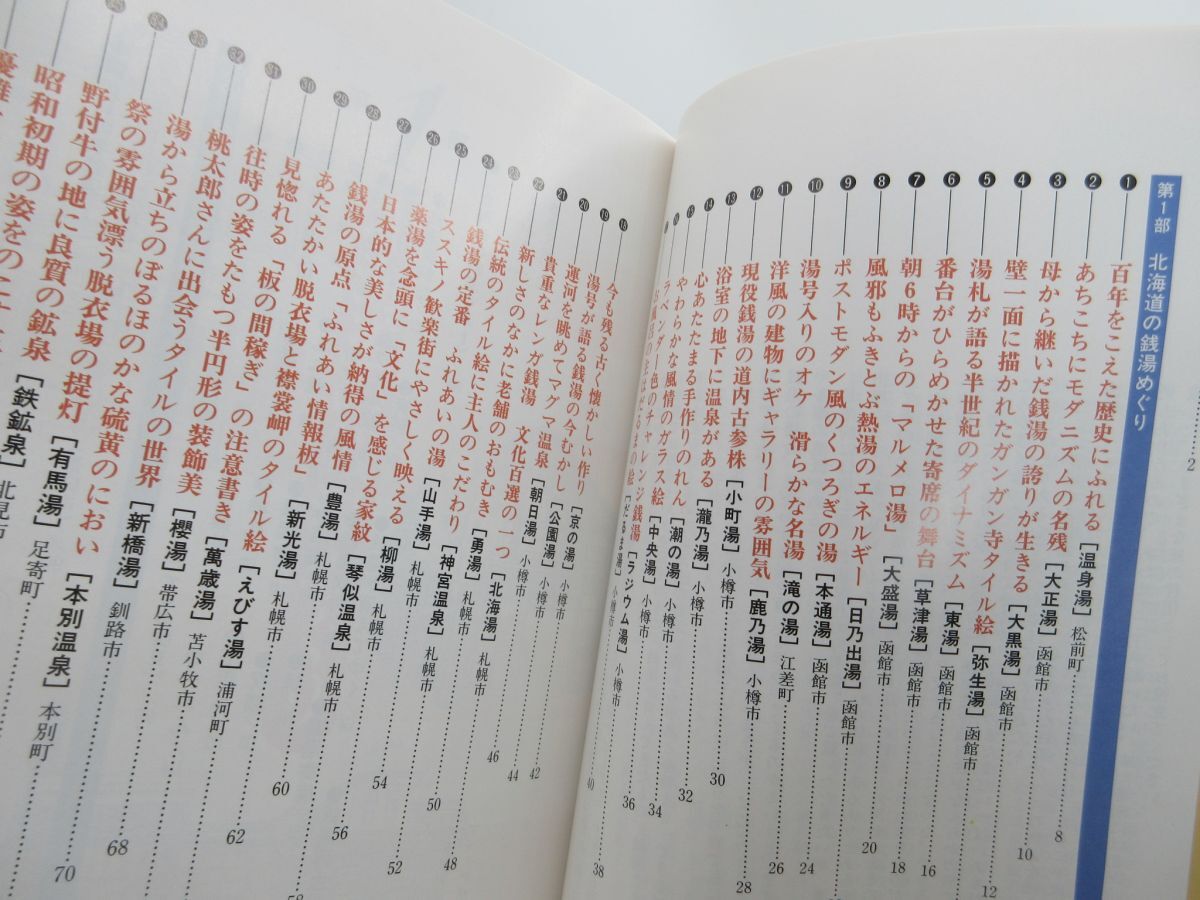 ……2
第1部 北海道の銭湯めぐり
❶ 百年をこえた歴史にふれる［温身湯］松前町……8
❷ あちこちにモダニズムの名残［大正湯］函館市……10
❸ 母から継いだ銭湯の誇りが生きる［大黒湯］函館市
❹ 壁一面に描かれたガンガン寺タイル絵［弥生湯］函館市……12
❺ 湯札が語る半世紀のダイナミズム［東湯］函館市
❻ 番台がひらめかせた寄席の舞台［草津湯］函館市……16
❼ 朝6時からの「マルメロ湯」［大盛湯］函館市……18
❽ 風邪もふきとぶ熱湯のエネルギー［日乃出湯］函館市……20
❾ ポストモダン風のくつろぎの湯［本通湯］函館市
❿ 湯号入りのオケ 滑らかな名湯［滝の湯］江差町……24
⓫ 洋風の建物にギャラリーの雰囲気［鹿乃湯］小樽市……26
⓬ 現役銭湯の道内古参株［小町湯］小樽市……28
⓭ 浴室の地下に温泉がある［瀧乃湯］小樽市……30
⓮ 心あたたまる手作りのれん［潮の湯］小樽市……32
⓯ やわらかな風情のガラス絵［中央湯］小樽市……34
⓰ ラベンダー色のチャレンジ銭湯［ラジウム湯］小樽市……36
の絵［だるま湯］小樽市……38
⓲ 今も残る古く懐かしい作り［京の湯］小樽市……40
⓳ 湯号が語る銭湯の今むかし［公園湯］小樽市
⓴ 運河を眺めてマグマ温泉［朝日湯］小樽市……42
㉑ 貴重なレンガ銭湯 文化百選の一つ［北海湯］……44
㉒ 新しさのなかに老舗のおもむき［勇湯］札幌市……46
㉓ 伝統のタイル絵に主人のこだわり［神宮温泉］札幌市
㉔ 銭湯の定番 ふれあいの湯［山手湯］札幌市……48
㉕ ススキノ歓楽街にやさしく映える［柳湯］札幌市……50
㉖ 薬湯を念頭に「文化」を感じる家紋［琴似温泉］札幌市……52
㉗ 日本的な美しさが納得の風情［豊湯］札幌市……54
㉘ 銭湯の原点「ふれあい情報板」［新光湯］札幌市……56
㉙ あたたかい脱衣場と襟裳岬のタイル絵［えびす湯］浦河町……58
㉚ 見惚れる「板の間稼ぎ」の注意書き［萬歳湯］苫小牧市……60
㉛ 往時の姿をたもつ半円形の装飾美［櫻湯］帯広市……62
㉜ 桃太郎さんに出会うタイルの世界［新橋湯］釧路市
㉝ 湯から立ちのぼるほのかな硫黄のにおい［本別温泉］本別町
㉞ 祭の雰囲気漂う脱衣場の提灯［有馬湯］足寄町……68
㉟ 野付牛の地に良質の鉱泉［鉄鉱泉］北見市……70
昭和初期の姿をのこ